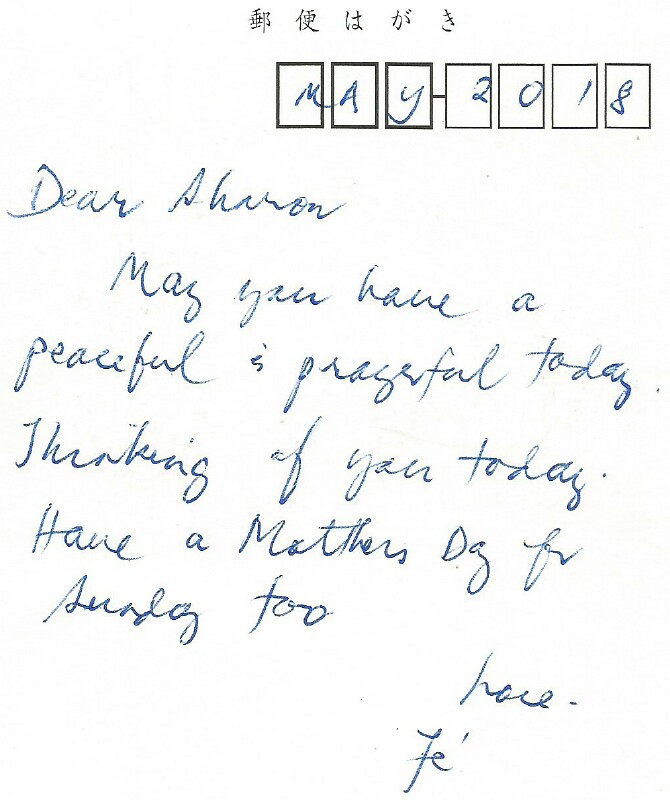 郵便はがき
MAY-2018
Dear Sharon
May you have a
peaceful & prayerful today.
Thinking of you today.
Have a Mothers Day for
Sunday too
Love.
Fé